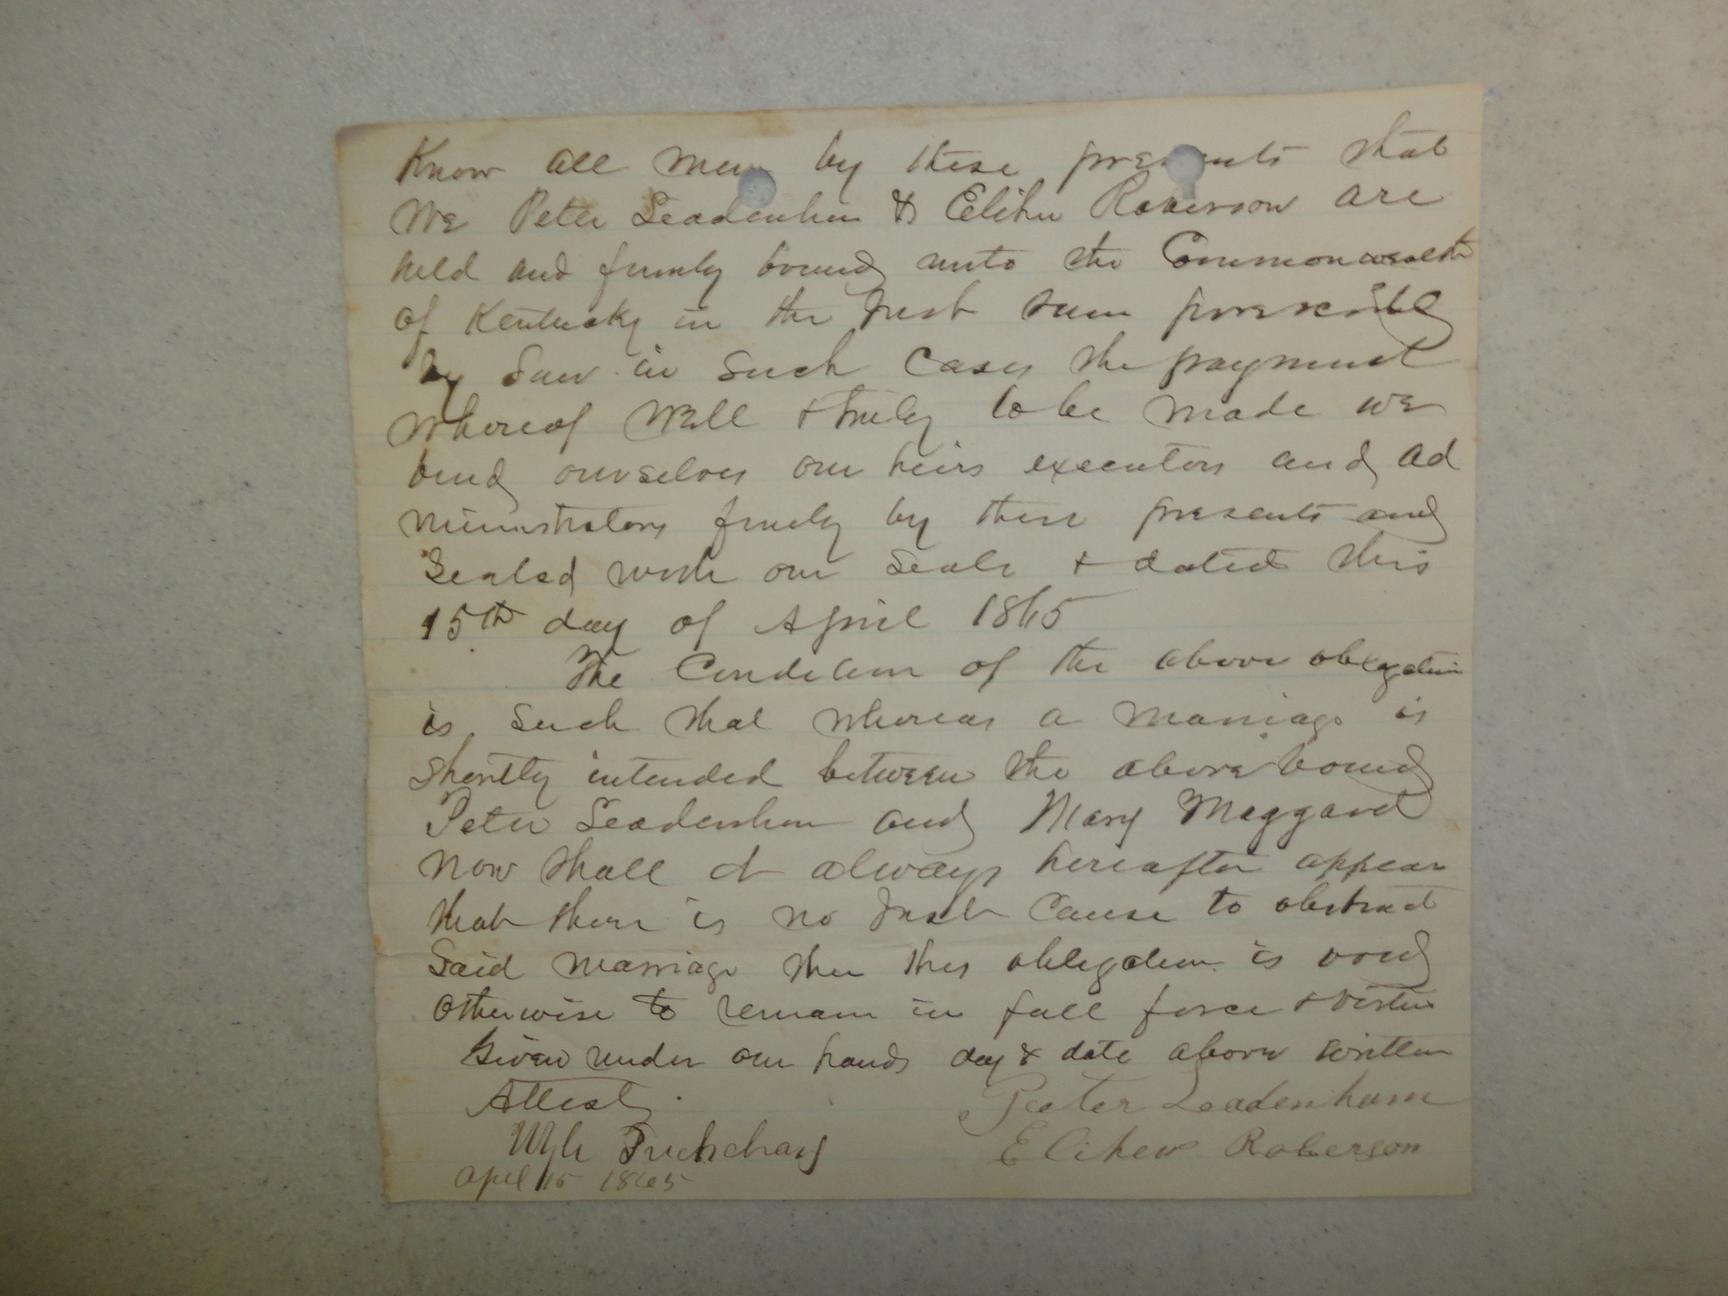 Know all men by these presents that
We Peter Leadenham & Elihu Roberson are
held and firmly bound unto the Commonwealth
of Kentucky in the Just sum prescribed
by Law in such cases the payment
whereof well & truly to be made we
bind ourselves our heirs executors and ad
ministrators firmly by these presents and
Sealed with our seals & dated this
15th day of April 1865
The Condition of the above obligation
is such that whereas a marriage is
shortly intended between the above bound
Peter Leadenham and Mary Maggard
now shall it always hereafter appear
that there is no Just cause to obstruct
Said marriage then this obligation is void
otherwise to remain in full force & virtue
Given under our hands day & date above written
Attest Peeter Leadenham
Elihew Roberson
April 15 1865